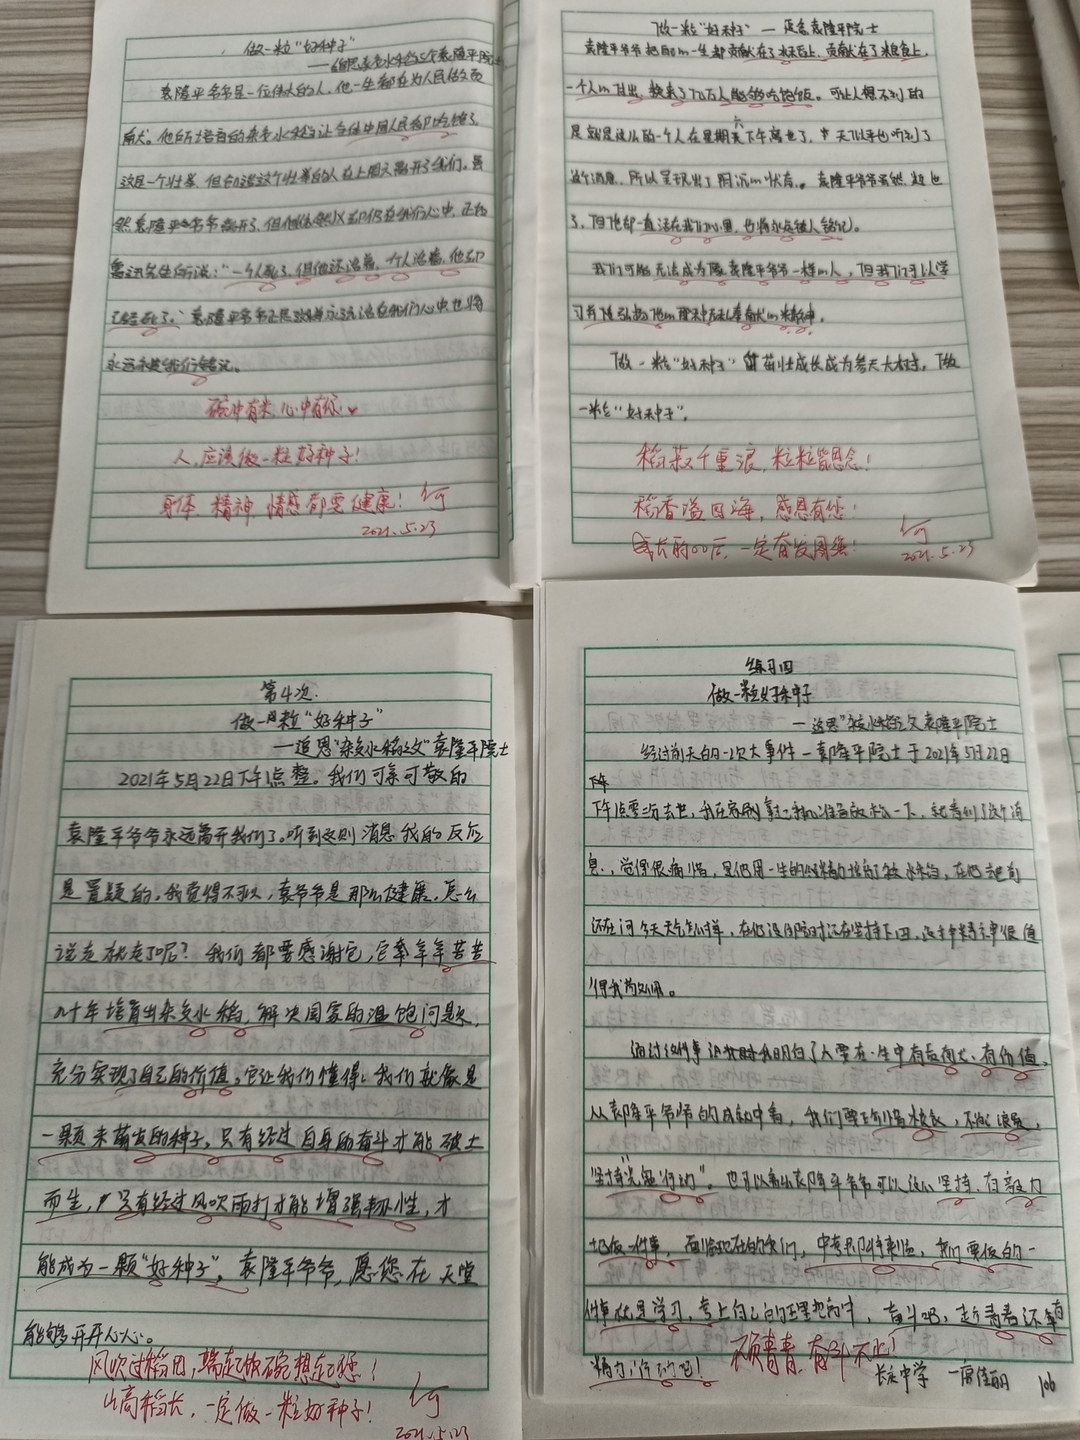 做一粒“好种子”
——追思杂交水稻之父袁隆平院士
袁隆平爷爷是一位伟大的人,他一生都在为人民做贡
献。他所培育的杂交水稻让全体中国人民都吃饱了,
这是一个壮举,但创造这个壮举的人在上周六离开了我们。虽
然袁隆平爷爷离开了,但他依然仍在我们心中,正如
鲁迅先生所说:“一个人死了,但他还活着,有人活着,他却
已经死了。”袁隆平爷爷永远活在我们心中也将
永远被我们铭记。
碗中有米,心中有你
人,应该做一粒好种子!
身体、精神、情感都要健康! 何
2021.5.23
做一粒“好种子”——追念袁隆平院士
袁隆平爷爷把自己的一生都贡献在了水稻上,贡献在了粮食上,
一个人的付出,换来了 万人能够吃饱饭。可让人想不到的
是就是这么的一个人在星期六下午离世了,天似乎也听到了
这个消息,所以呈现出了阴沉的状态。袁隆平爷爷虽然 世
了,但他却一直活在我们心里,也将永远被人铭记。
我们可能无法成为像袁隆平爷爷一样的人,但我们可以学
习并 弘扬他的 奉献的精神。
做一粒“好种子”茁壮成长成为参天大树,做
一粒“好种子”。
稻菽千重浪,粒粒皆思念!
稻香溢四海,感恩有您!
成长的00后,一定奋发图强! 何
2021.5.23
第4次.
做一粒“好种子”
——追思“杂交水稻之父”袁隆平院士
2021年5月22日下午1点整。我们可亲可敬的
袁隆平爷爷永远离开我们了。听到这则消息我的反应
是置疑的,我觉得不可以,袁爷爷是那么健康,怎么
说走就走了呢?我们都要感谢它,它辛辛苦苦
几十年培育出杂交水稻,解决国家的温饱问题,
充分实现了自己的价值,它让我们懂得,我们就像是
一颗未萌发的种子,只有经过自身的奋斗才能破土
而生,只有经过风吹雨打才能增强韧性,才
能成为一颗“好种子”,袁隆平爷爷,愿您在天堂
能够开开心心。
风吹过稻田,端起饭碗想起您!
山高稻长,一定做一粒好种子! 何
2021.5.23
练习四
做一粒好种子
——追思“杂交水稻之父”袁隆平院士
经过前天的一次大事件——袁隆平院士于2021年5月22日
下午
下午1点零7分去世,我在家刚拿起手机准备放松一下,就看到了这个消
息,觉得很痛惜,是他用一生的精力培育了杂交水稻,在他 前
还在问今天天气怎样,在他 时还在坚持下田, 很值
得我 。
通过这件事 让我明白了人要在一生中有益 ,有价值,
从袁隆平爷爷的 中看,我们要 粮食,不能浪费,
坚持“光盘行动”。也可以看出袁隆平爷爷可以 坚持,有毅力
地做一件事,面临现在的我们,中考即将来临,我们要做的一
件事就是学习,考上自己的理想高中,奋斗吧,趁青春还 有
精力,行动吧!
顾青春,奋斗不止!
中学
106